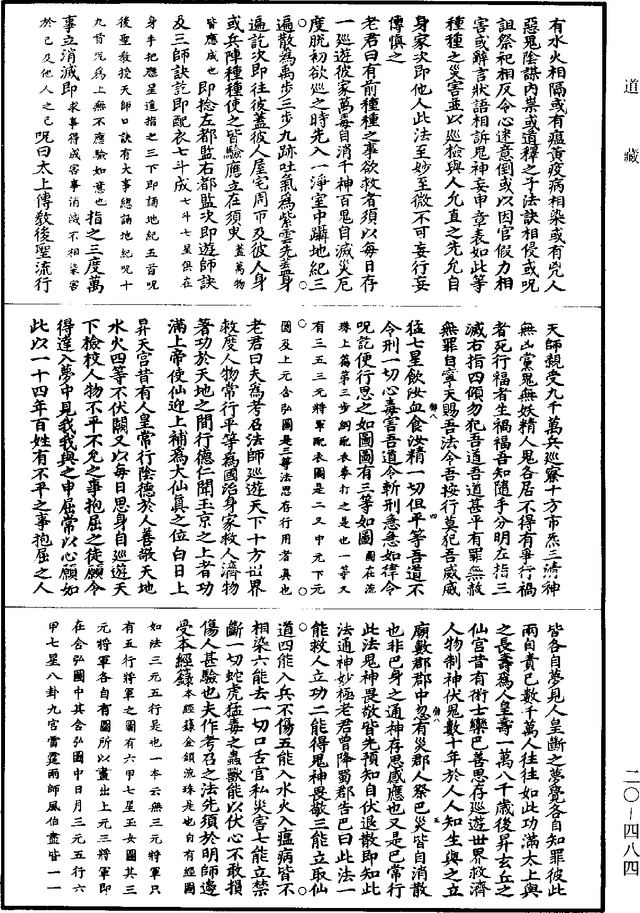 道藏
有水火相隔或有瘟黄疫病相染或有兇人
惡鬼陰謀內祟或道釋之子法訣相侵或呪
詛祭祀相反令心迷意倒或以因官假力相
害或辭言狀語相訴鬼神妄申章表如此等
種種之災害並以巡檢與人允直之先允自
身家次即他人此法至妙至微不可妄行妄
傳慎之
老君曰有前種種之事欲救者須以每日存
一巡遊彼家萬毒自消千神百鬼自滅災厄
度脫初欲巡之時先入一淨室中躡地紀三
遍散為禹步三步九跡吐氣為紫雲先蓋身
遍訖次即往彼蓋彼人屋宅周帀及彼人身
或兵陣種種使之皆驗應立在須臾蓋萬物
皆應成也即捻左都監右都監次即遊師訣
及三師訣訖即配衣七斗成七斗七星俱在
身手把應星道指之三下即誦地紀五首呪
後聖教授天師口訣有大事總誦地紀呪十
九首咒為上無不應驗如意也指之三度萬
事立消滅即求事得成害事消滅不相染害
於己及他人之己呪曰太上傳教後聖流行
天師親受九千萬兵巡察十方市炁三清神
無凶黨鬼無妖精人鬼各居不得有爭行禍
者死行福者生禍福吾知隨手分明左指三
滅右指四傾勿犯吾道吾道甚平有罪無赦
無罪自寧天賜吾法令吾按行莫犯吾威威
猛七星飲汝血食汝精一切但平等吾道不
令刑一切心毒害吾道令斬刑急急如律令
呪訖便行思之如圖圖有三等如圖圖在流
珠上篇第三步綱配衣拳打之是也一等又
有三五三元將軍配衣圖是二又中元下元
圖及上元含弘圖是三等法思存行用者真也
老君曰夫為考召法師巡遊天下十方世界
救度人物常行平等為國治身家救人濟物
著功於天地之間行德仁聞玉京之上者功
滿上帝使仙迎上補為大仙真之位白日上
昇天宮昔有人皇常行陰德於人善敬天地
水火四等不伏闘又以每日思身自巡遊天
下檢校人物不平不允之事抱屈之徒願令
得達入夢中見我我與之申屈常以心願如
此以一十四年百姓有不平之事抱屈之人
皆各自夢見人皇斷之夢覺各自知罪彼此
兩自責已數千萬人往往如此功滿太上與
之長壽為人皇壽一萬八千歲後昇玄丘之
仙宮昔有術士欒巴善思存巡遊世界救濟
人物制神伏鬼數十年於人人知生與之立
廟數郡郡中忽有災郡人祭巴災皆自消散
也非巴身之通神存思感應也又是巴常行
此法鬼神畏敬皆先預知自伏退散即知此
法通神妙極老君曾降蜀郡告巴曰此法一
能救人立功二能得鬼神畏敬三能立取仙
道四能入兵不傷五能入水火入瘟病皆不
相染六能去一切口舌官私災害七能立禁
斷一切蛇虎猛毒之蟲獸能以伏心不敢損
傷人甚驗也夫作考召之法先須於明師邊
受本經籙本經籙金鎖流珠是也自有經圖
如法三元五行是也一本云無三元將軍只
有五行將軍之圖有六甲七星玉女圖其三
元將軍各自有圖所以畫出上元三將軍即
在含弘圖中其含弘圖中日月三元五行六
甲七星八卦九宮雷霆雨師風伯盡皆一一
二〇—四八四